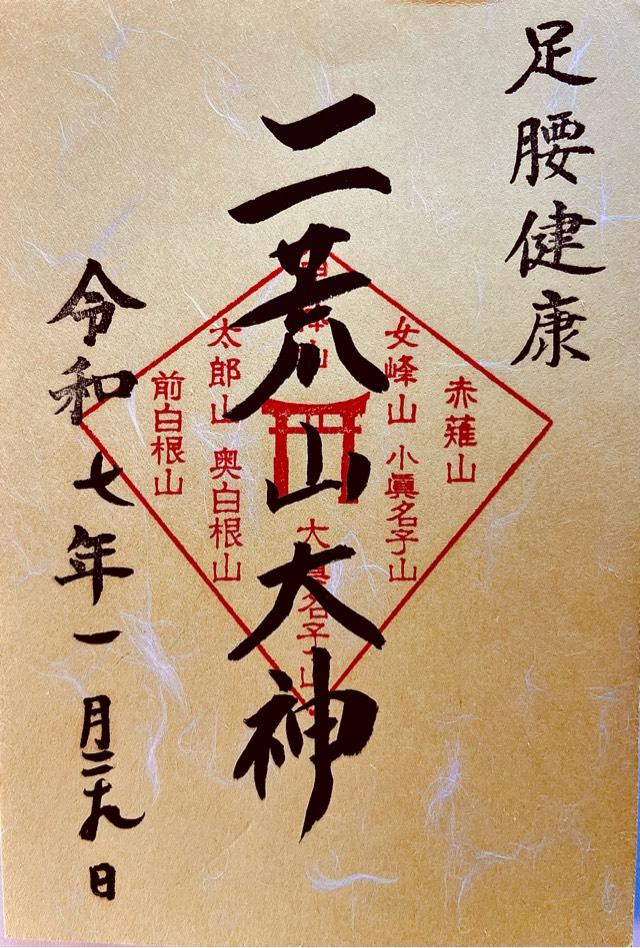 足腰健康
二荒山大神
令和七年一月二十九日
赤薙山
女峰山
小眞名子山
男体山
大眞名子山
太郎山
奥白根山
前白根山